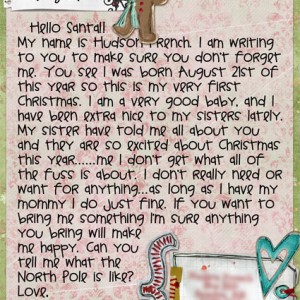 Hello Santa!!
My name is Hudson French. I am writing
to you to make sure you don't forget
me. You see I was born August 21st of
this year so this is my very first
Christmas. I am a very good baby, and I
have been extra nice to my sisters lately.
My sister have told me all about you
and they are so excited about Christmas
this year......me I don't get what all of
the fuss is about. I don't really need or
want for anything...as long as I have my
mommy I do just fine. If you want to
bring me something I'm sure anything
you bring will make
me happy. Can you
tell me what the
North Pole is like?
Love,